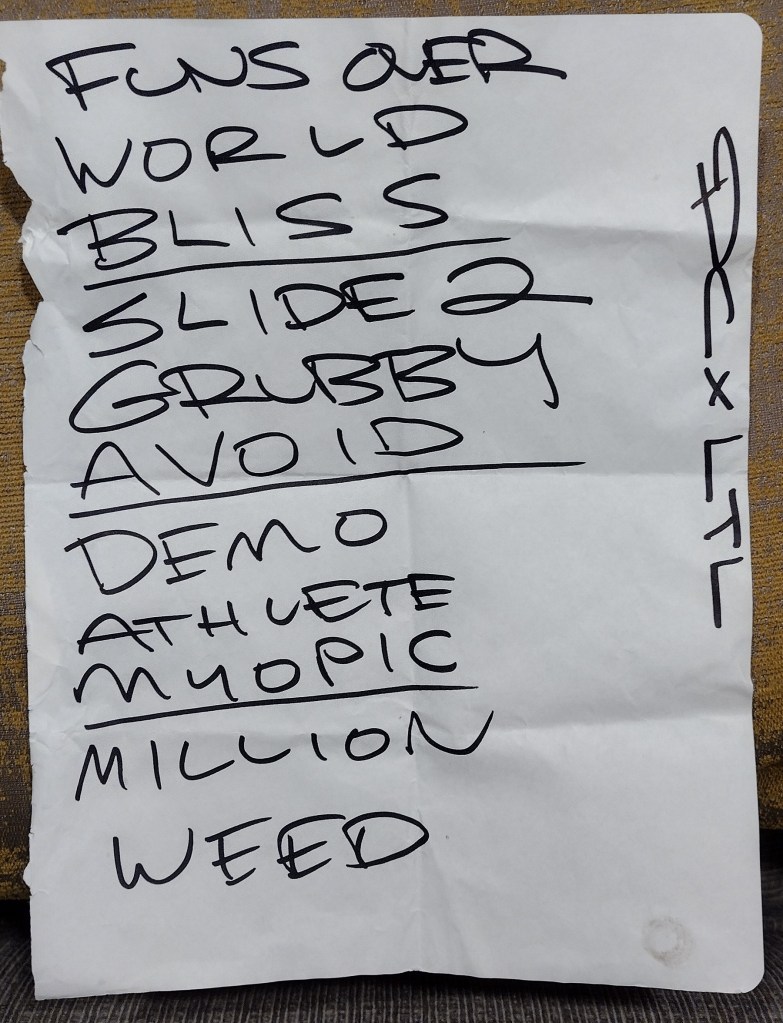 FUNS OVER
WORLD
BLISS
SLIDE 2
GRUBBY
AVOID
DEMO
ATHLETE
MYOPIC
MILLION
WEED
DC x LTL